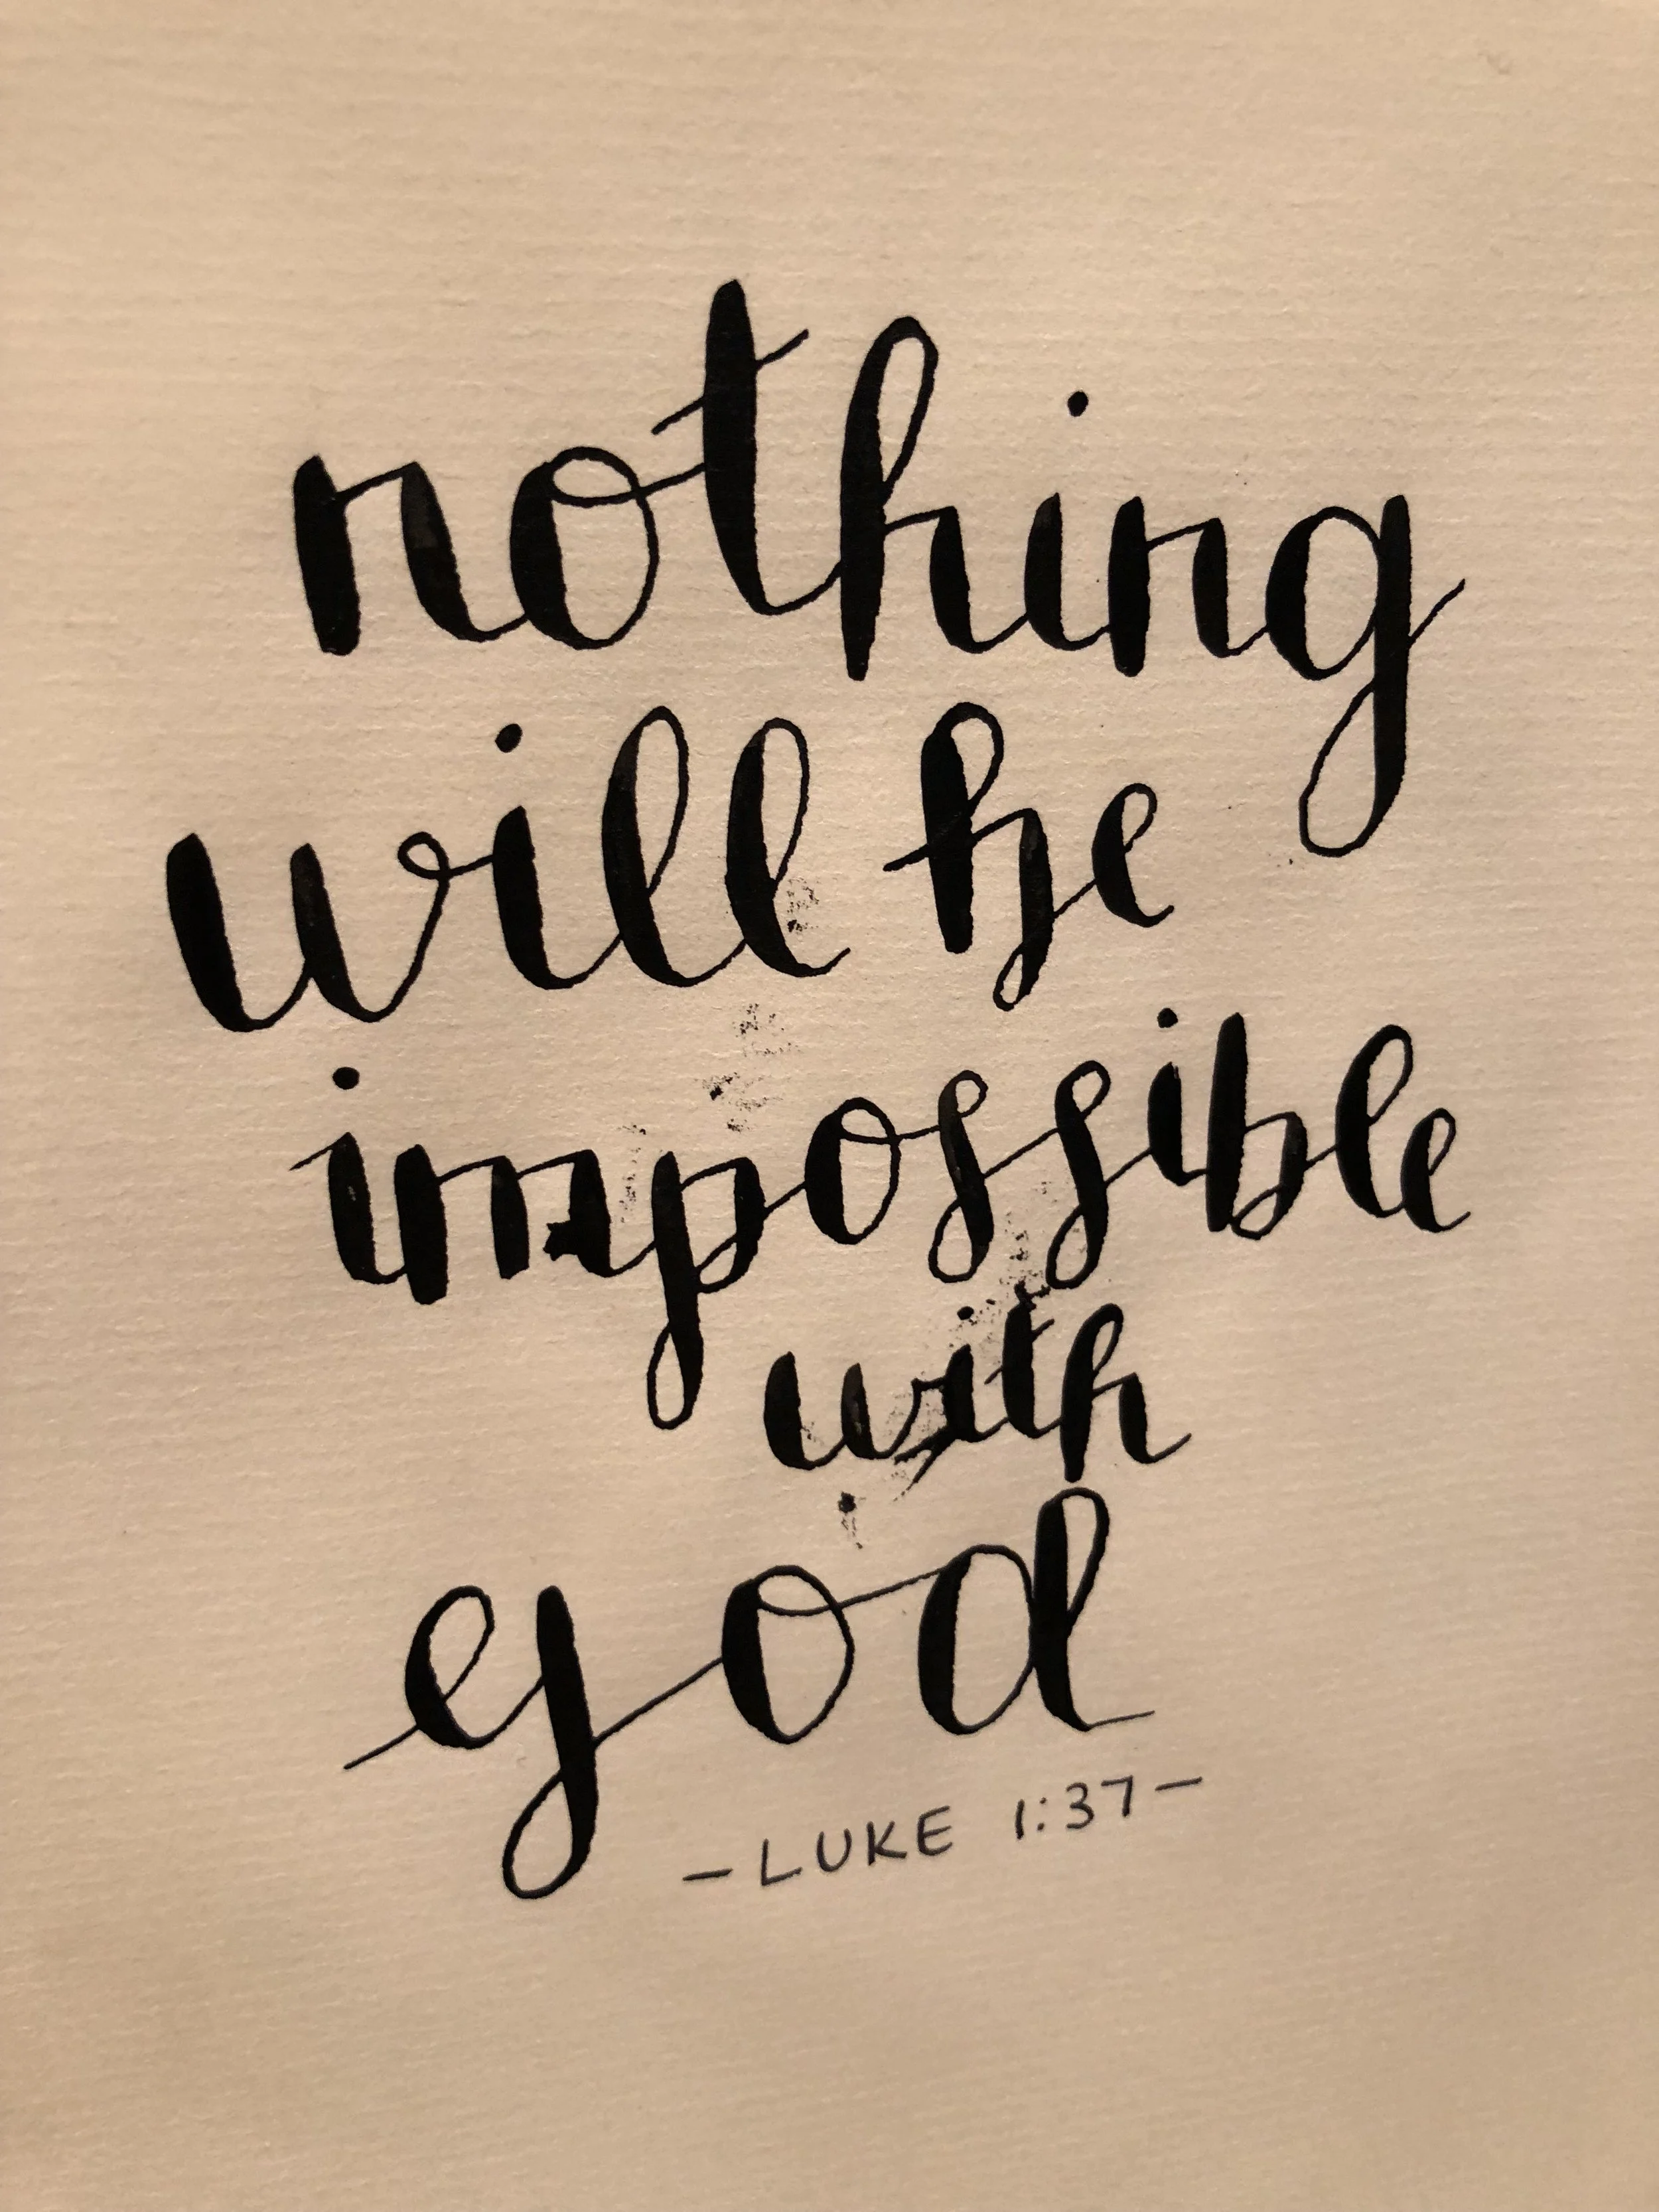 nothing
will be
impossible
with
god
- LUKE 1:37 -